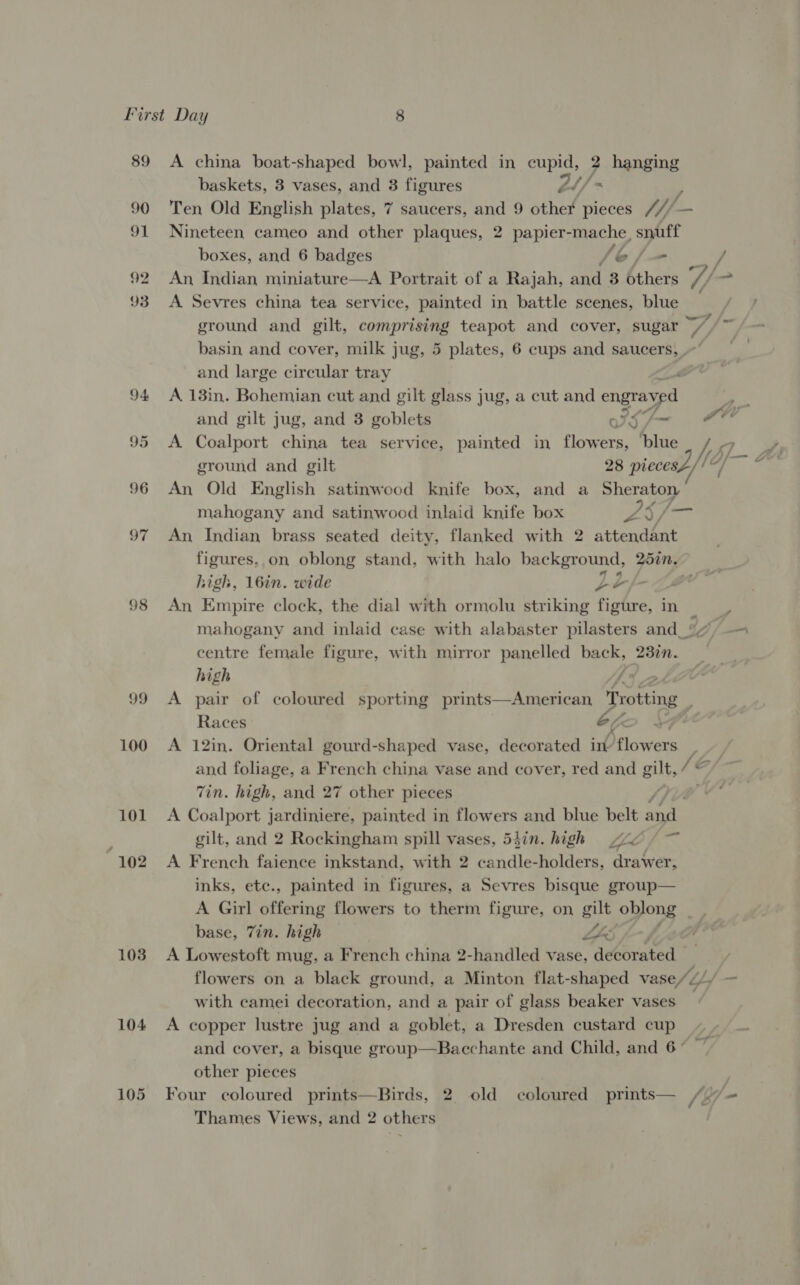 First Day 8
89 A china boat-shaped bowl, painted in cupid, 2 hanging
baskets, 3 vases, and 3 figures 21/-
90 Ten Old English plates, 7 saucers, and 9 other pieces
91 Nineteen cameo and other plaques, 2 papier-mache snuff
boxes, and 6 badges
92 An Indian miniature—A Portrait of a Rajah, and 3 others
93 A Sevres china tea service, painted in battle scenes, blue
ground and gilt, comprising teapot and cover, sugar
basin and cover, milk jug, 5 plates, 6 cups and saucers,
and large circular tray
94 A 13in. Bohemian cut and gilt glass jug, a cut and engraved
and gilt jug, and 3 goblets
95 A Coalport china tea service, painted in flowers, blue
ground and gilt 28 pieces
96 An Old English satinwood knife box, and a Sheraton
mahogany and satinwood inlaid knife box 25/-
97 An Indian brass seated deity, flanked with 2 attendant
figures, on oblong stand, with halo background, 25in.
high, 16in. wide 22/-
98 An Empire clock, the dial with ormolu striking figure, in
mahogany and inlaid case with alabaster pilasters and
centre female figure, with mirror panelled back, 23in.
high
99 A pair of coloured sporting prints—American Trotting
Races
100 A 12in. Oriental gourd-shaped vase, decorated in flowers
and foliage, a French china vase and cover, red and gilt,
7in. high, and 27 other pieces
101 A Coalport jardiniere, painted in flowers and blue belt and
gilt, and 2 Rockingham spill vases, 5½in. high
102 A French faience inkstand, with 2 candle-holders, drawer,
inks, etc., painted in figures, a Sevres bisque group—
A Girl offering flowers to therm figure, on gilt oblong
base, 7in. high
103 A Lowestoft mug, a French china 2-handled vase, decorated
flowers on a black ground, a Minton flat-shaped vase
with camei decoration, and a pair of glass beaker vases
104 A copper lustre jug and a goblet, a Dresden custard cup
and cover, a bisque group—Bacchante and Child, and 6
other pieces
105 Four coloured prints—Birds, 2 old coloured prints—
Thames Views, and 2 others